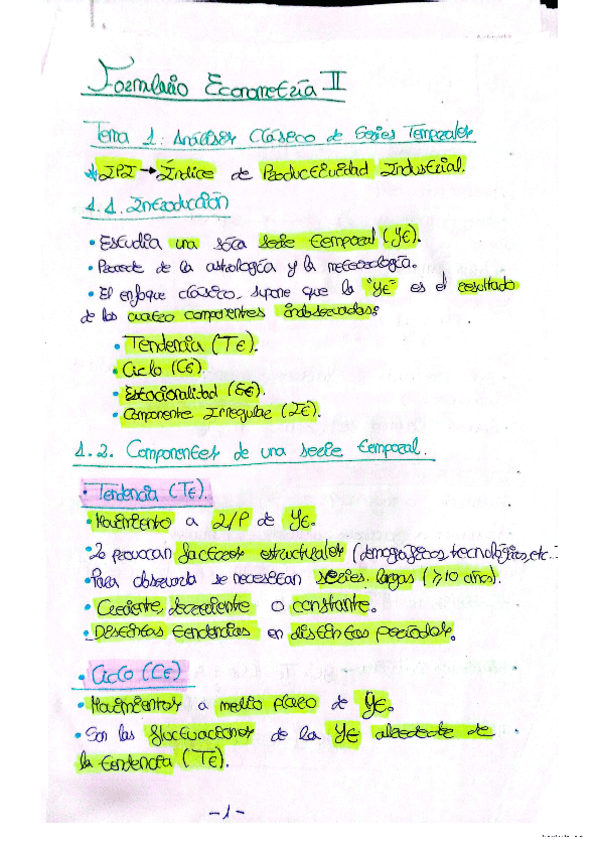 Formulario Econometría II
Tema 1: Análisis Clásico de Series Temporales
IPI → Índice de Productividad Industrial.
1.1. Introducción
• Estudia una sola serie temporal (Yt).
• Procede de la astrología y la meteorología.
• El enfoque clásico, supone que la "Yt" es el resultado
de los cuatro componentes inobservados:
• Tendencia (Tt).
• Ciclo (Ct).
• Estacionalidad (Et).
• Componente Irregular (It).
1.2. Componentes de una serie temporal.
• Tendencia (Tt).
• Movimiento a L/P de Yt.
• Lo provocan factores estructurales (demográficos, tecnológicos, etc...
• Para observarla se necesitan series largas (≥10 años).
• Creciente, decreciente o constante.
• Distintas tendencias en distintos periodos.
• Ciclo (Ct)
• Movimientos a medio plazo de Yt.
• Son las fluctuaciones de la Yt alrededor de
la tendencia (Tt).
-1-